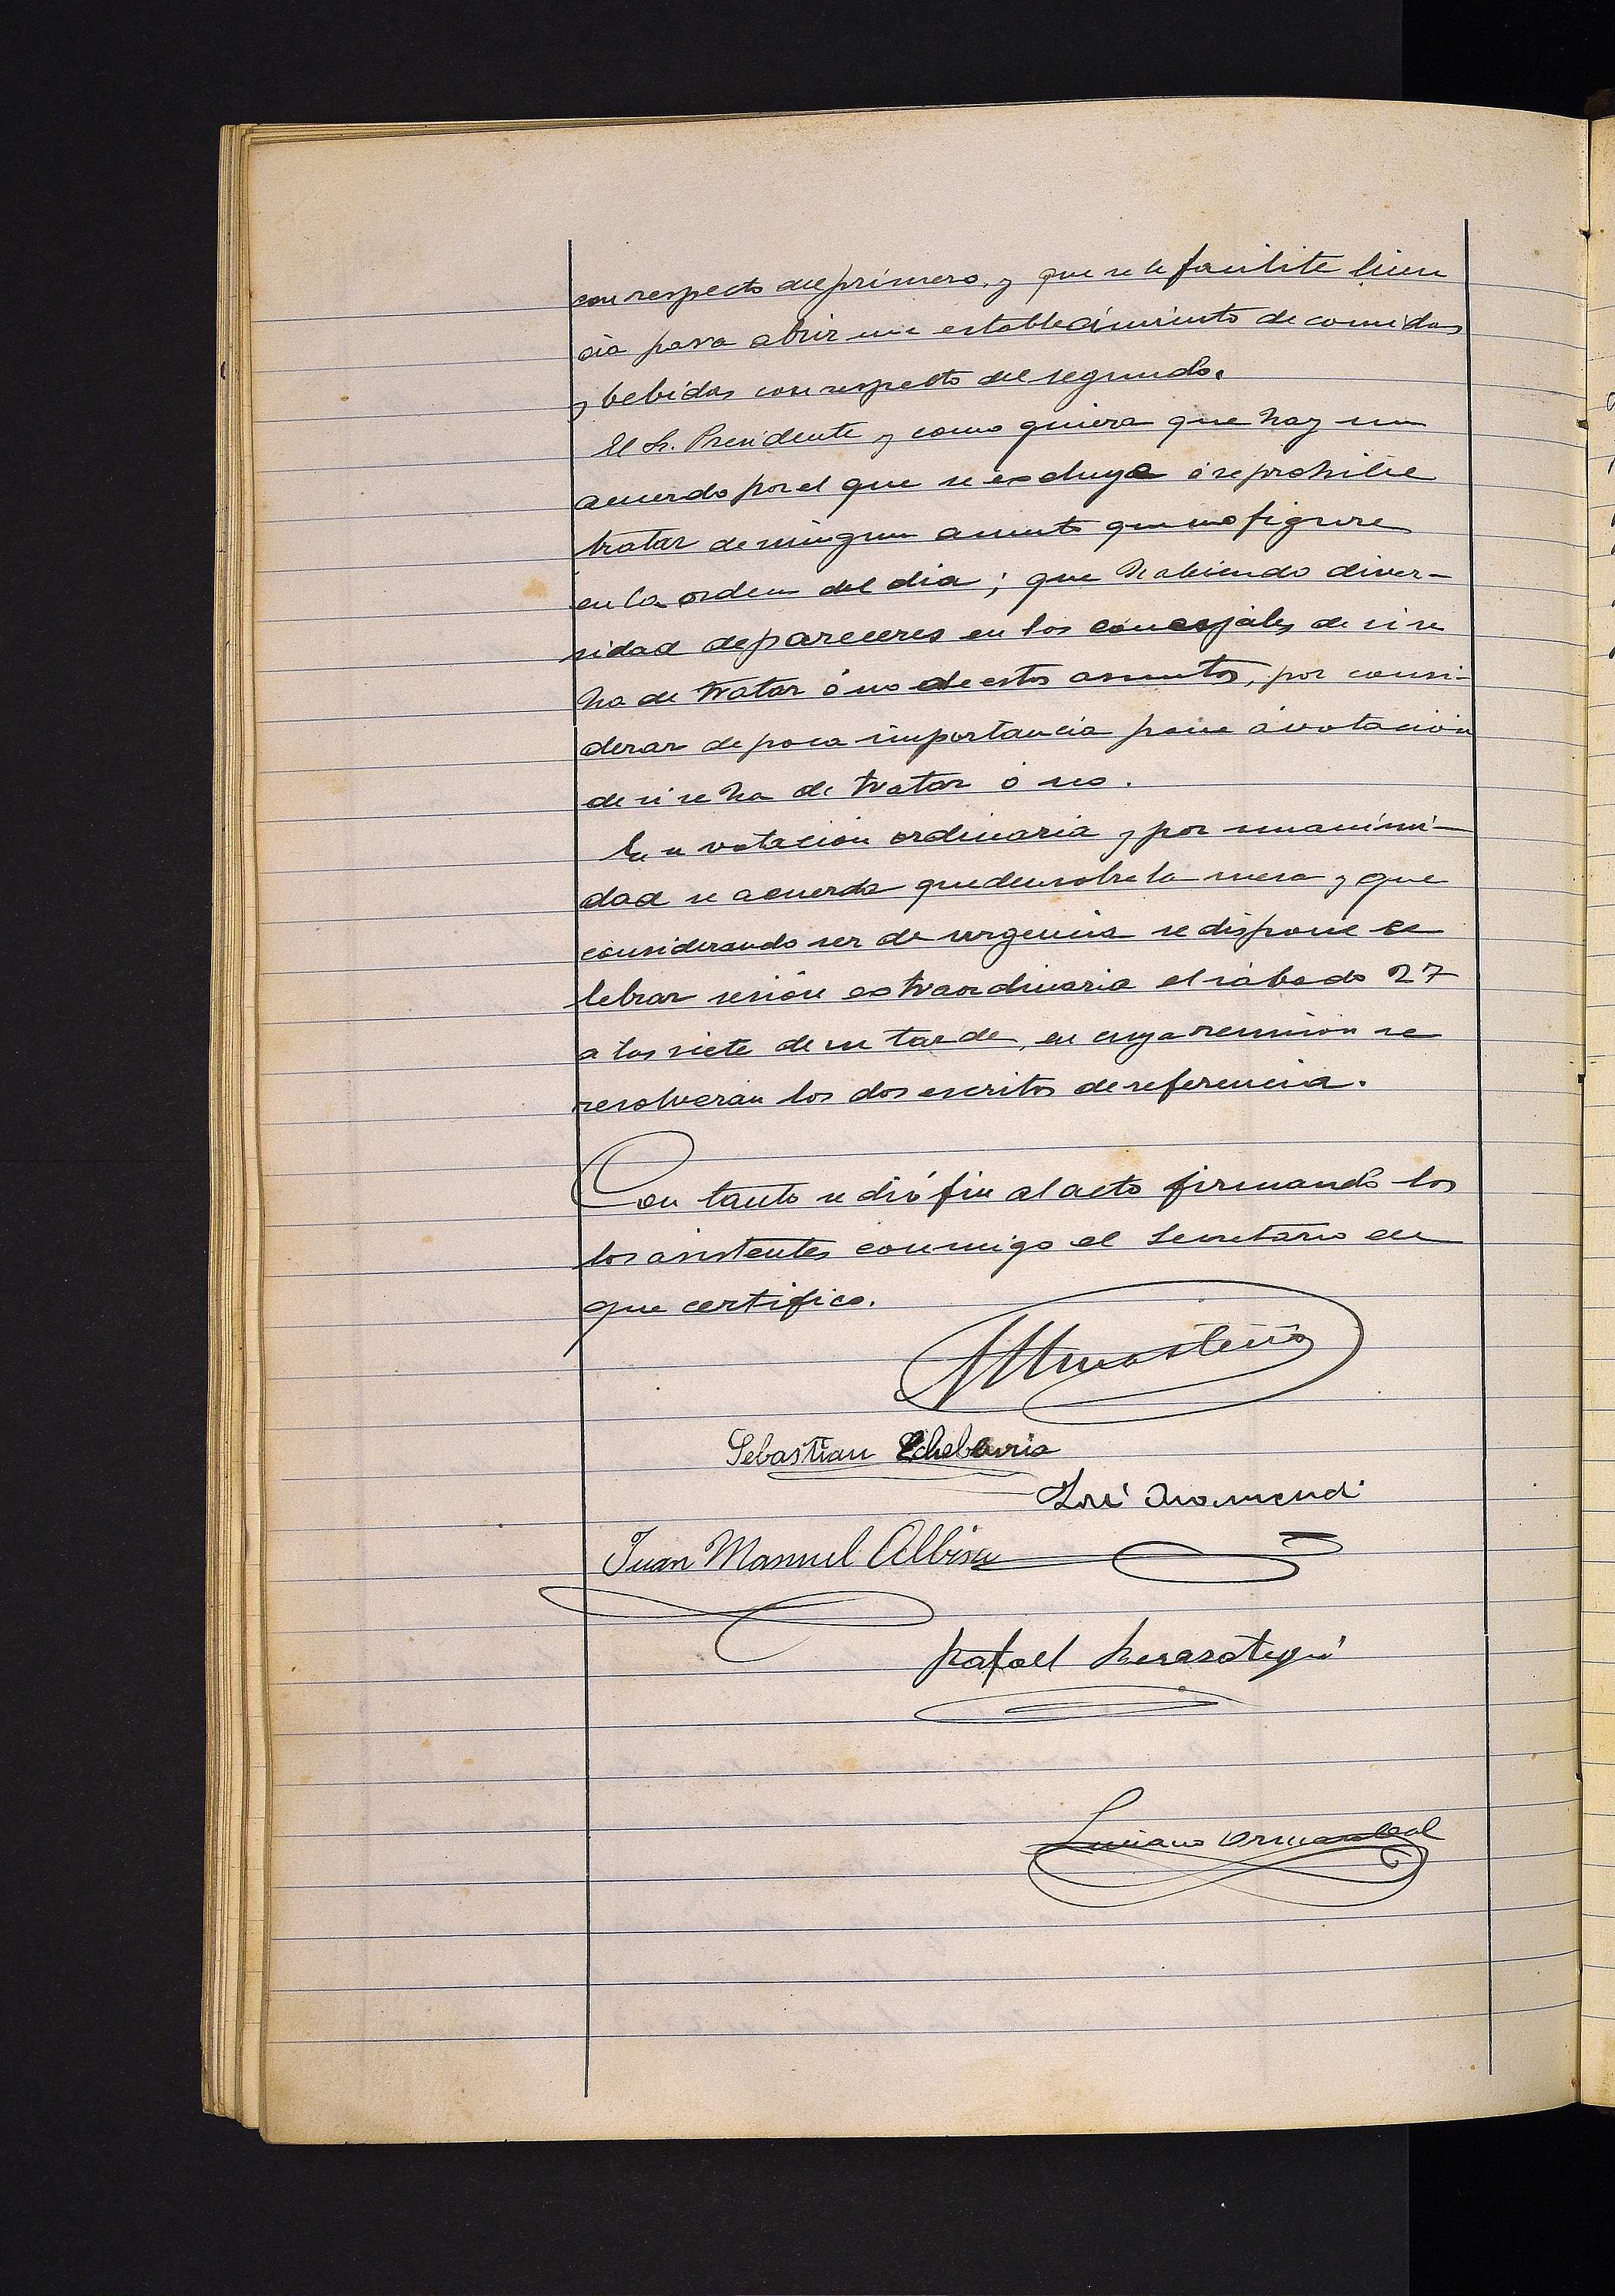 con respecto del primero, y que se le facilite licen
cia para abrir un establecimiento de comidas
y bebidas con respecto del segundo.
El Sr. Presidente y como quiera que hay un
acuerdo por el que se excluye ó se prohibe
tratar de ningun asunto que no figure
en la orden del dia; que habiendo diver-
sidad de pareceres en los concejales de si se
ha de tratar ó no de estos asuntos, por consi-
derar de poca importancia pone á votación
de si se ha de tratar ó no.
En votación ordinaria y por unanimi-
dad se acuerda queden sobre la mesa y que
considerando ser de urgencia se dispone ce
lebrar sesión extraordinaria el sábado 27
a las siete de su tarde, en cuya reunión se
resolverán los dos escritos de referencia.
Con tanto se dió fin al acto firmando los
los asistentes conmigo el Secretario en
que certifico.
Sebastian Echeberria
José Aramendi
Juan Manuel Albisu
Rafael Berasategui
Luciano